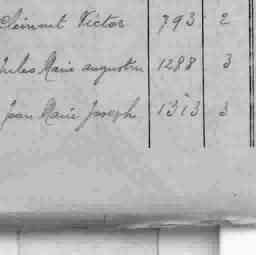 Clément Victor 793 2
Jules Marie Augustin 1288 3
Jean Marie Joseph 1313 3